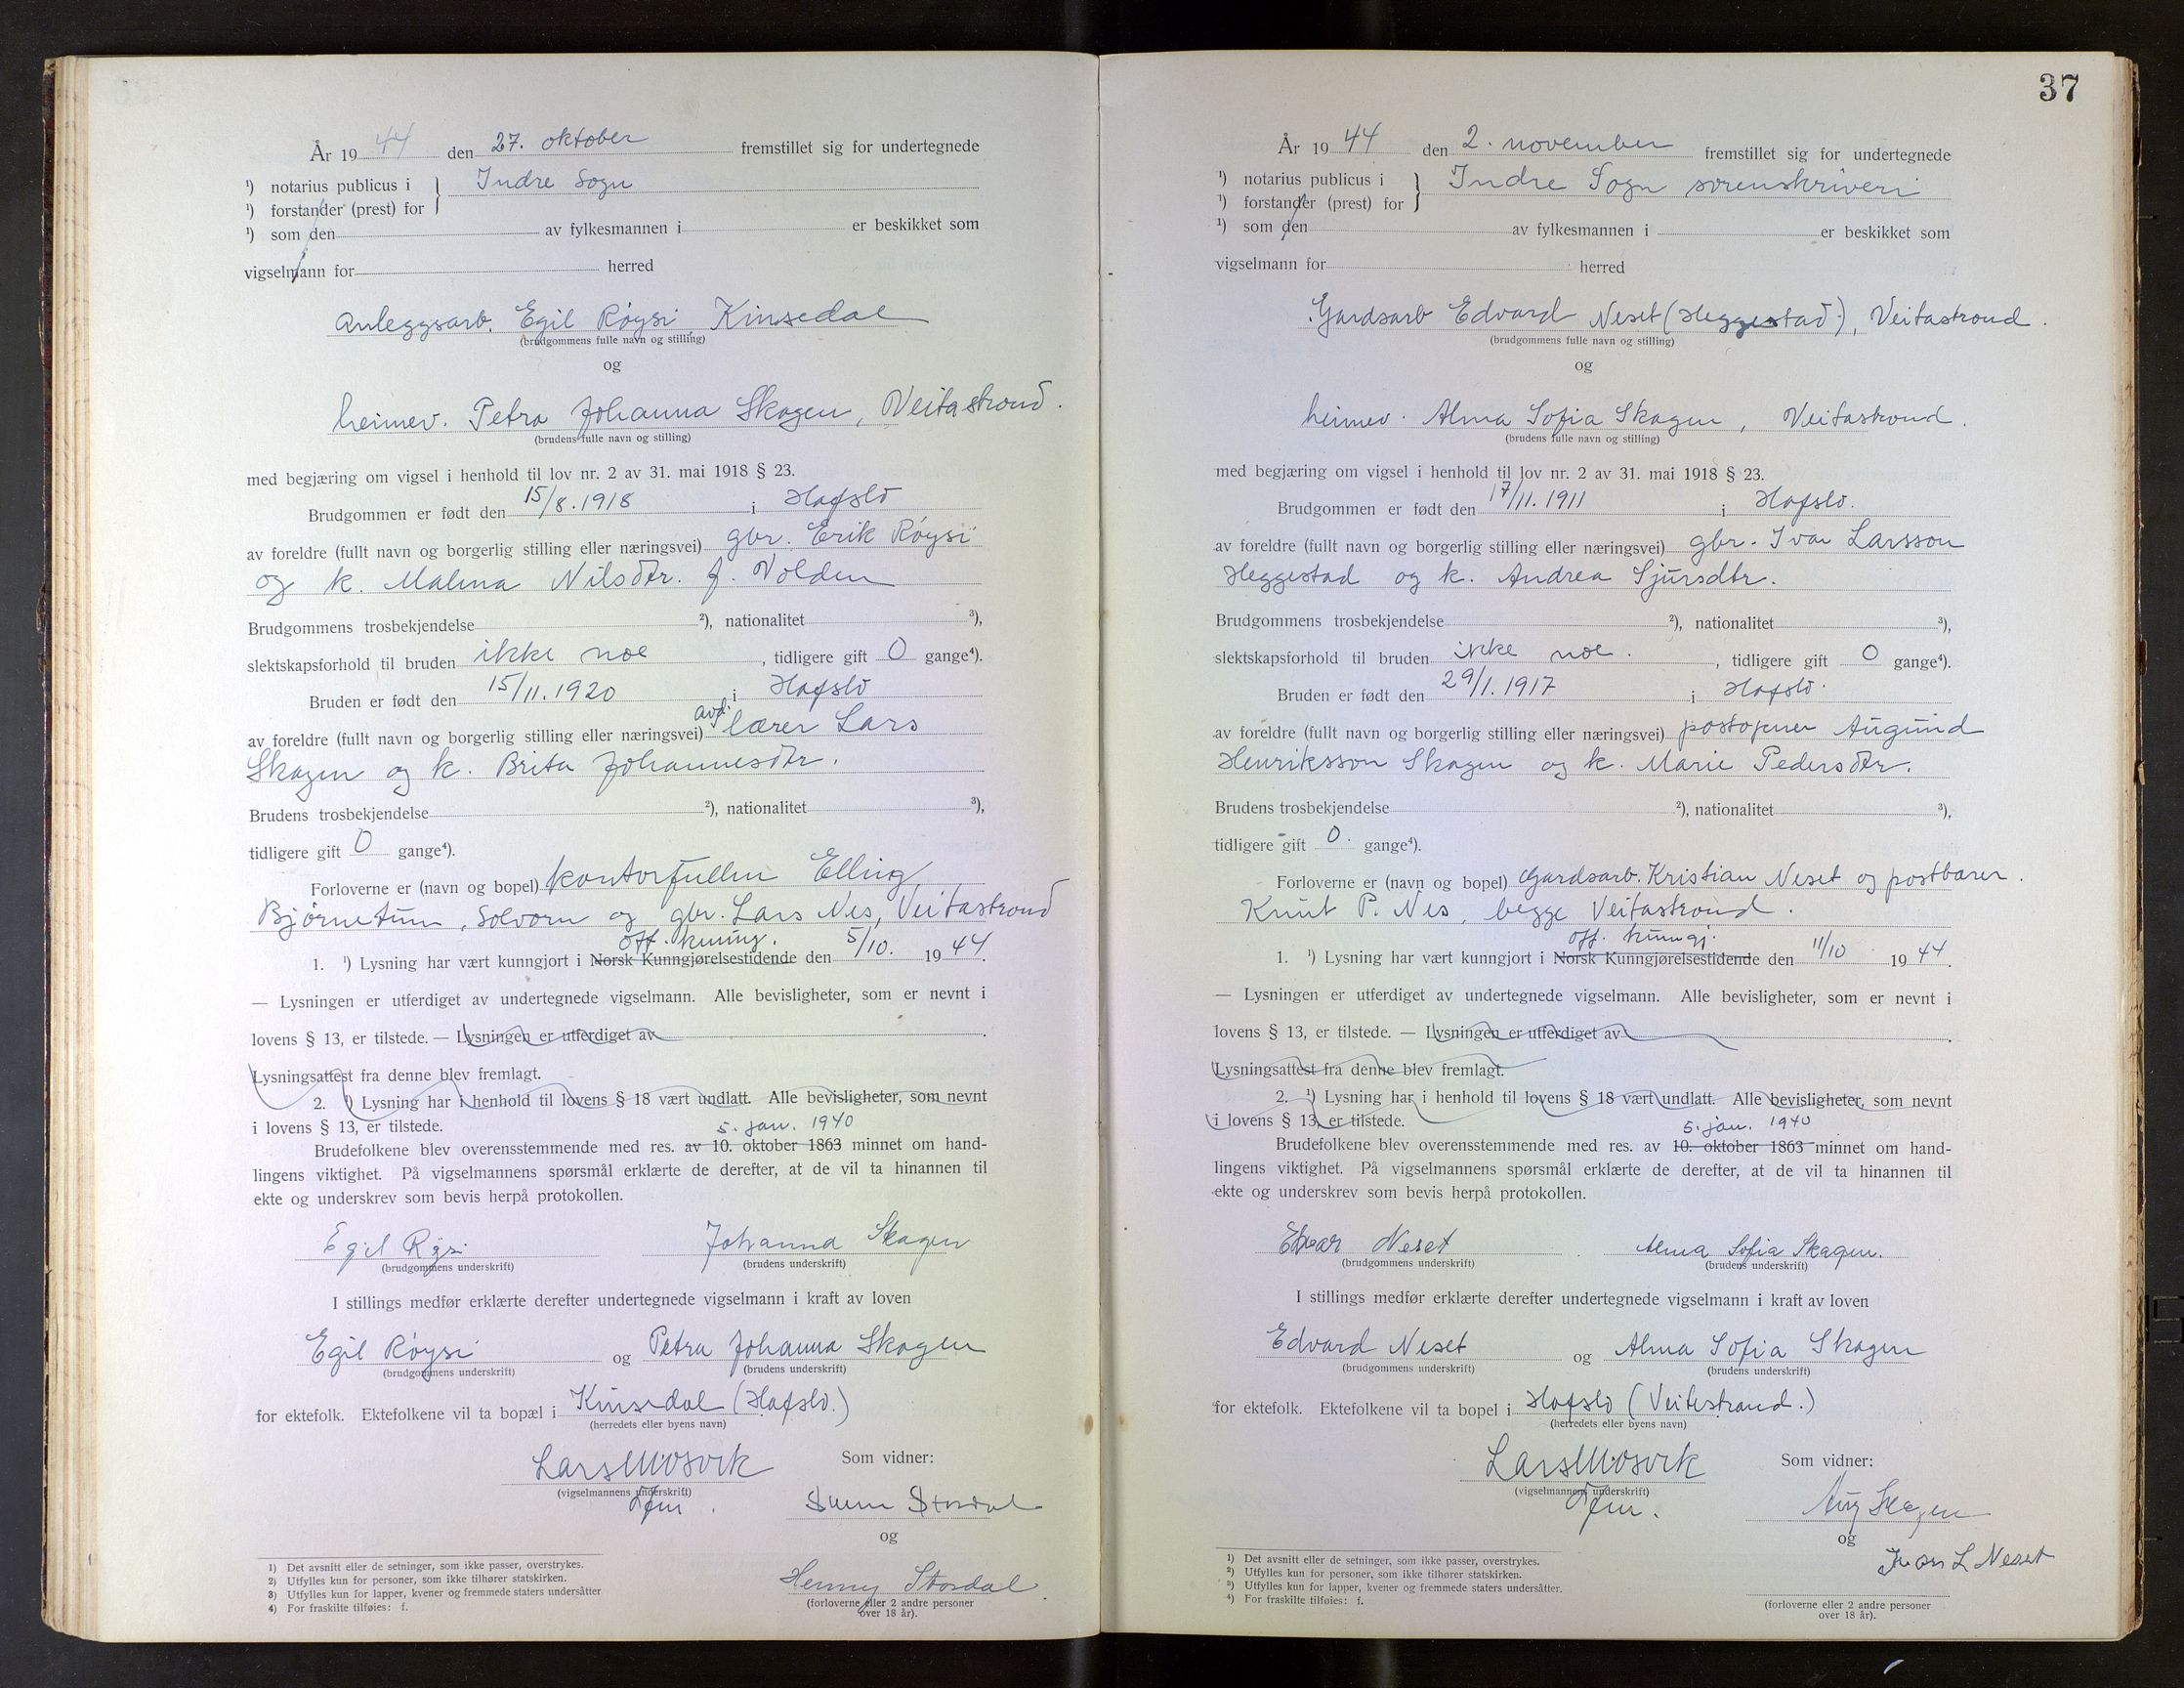 År 1944 den 27. oktober fremstillet sig for undertegnede
¹) notarius publicus i } Indre Sogn
¹) forstander (prest) for
¹) som den av fylkesmannen i er beskikket som
vigselmann for herred
Anleggsarb. Egil Røysi, Kinsedal
(brudgommens fulle navn og stilling)
og
heimev. Petra Johanna Skagen, Veitastrond.
(brudens fulle navn og stilling)
med begjæring om vigsel i henhold til lov nr. 2 av 31. mai 1918 § 23.
Brudgommen er født den 15/8.1918 i Hafslo
av foreldre (fullt navn og borgerlig stilling eller næringsvei) gbr. Erik Røysi
og k. Malena Nilsdtr. f. Volden
Brudgommens trosbekjendelse ²), nationalitet ³),
slektskapsforhold til bruden ikke noe, tidligere gift 0 gange⁴).
Bruden er født den 15/11.1920 i Hafslo
avd.
av foreldre (fullt navn og borgerlig stilling eller næringsvei) lærer Lars
Skagen og k. Brita Johannesdtr.
Brudens trosbekjendelse ²), nationalitet ³),
tidligere gift 0 gange⁴).
Forloverne er (navn og bopel) kontorfullm Elling
Bjørnetun, Solvorn og gbr. Lars Nes, Veitastrond
off. kunng.
1. ¹) Lysning har vært kunngjort i Norsk Kunngjørelsestidende den 5/10. 1944.
— Lysningen er utferdiget av undertegnede vigselmann. Alle bevisligheter, som er nevnt i
lovens § 13, er tilstede. — Lysningen er utferdiget av
Lysningsattest fra denne blev fremlagt.
2. ¹) Lysning har i henhold til lovens § 18 vært undlatt. Alle bevisligheter, som nevnt
i lovens § 13, er tilstede.
5. jan. 1940
Brudefolkene blev overensstemmende med res. av 10. oktober 1863 minnet om hand-
lingens viktighet. På vigselmannens spørsmål erklærte de derefter, at de vil ta hinannen til
ekte og underskrev som bevis herpå protokollen.
Egil Røysi Johanna Skagen
(brudgommens underskrift) (brudens underskrift)
I stillings medfør erklærte derefter undertegnede vigselmann i kraft av loven
Egil Røysi og Petra Johanna Skagen
(brudgommens underskrift) (brudens underskrift)
for ektefolk. Ektefolkene vil ta bopæl i Kinsedal (Hafslo.)
(herredets eller byens navn)
Lars Mosvik Som vidner:
(vigselmannens underskrift)
Stordal
og
Henny Stordal
(forloverne eller 2 andre personer
over 18 år).
1) Det avsnitt eller de setninger, som ikke passer, overstrykes.
2) Utfylles kun for personer, som ikke tilhører statskirken.
3) Utfylles kun for lapper, kvener og fremmede staters undersåtter
4) For fraskilte tilføies: f.
37
År 1944 den 2. november fremstillet sig for undertegnede
¹) notarius publicus i } Indre Sogn sorenskriveri
¹) forstander (prest) for
¹) som den av fylkesmannen i er beskikket som
vigselmann for herred
Gardsarb Edvard Neset (Heggestad), Veitastrond.
(brudgommens fulle navn og stilling)
og
heimev. Alma Sofia Skagen, Veitastrond.
(brudens fulle navn og stilling)
med begjæring om vigsel i henhold til lov nr. 2 av 31. mai 1918 § 23.
Brudgommen er født den 17/11.1911 i Hafslo.
av foreldre (fullt navn og borgerlig stilling eller næringsvei) gbr. Ivar Larsson
Heggestad og k. Andrea Sjursdtr.
Brudgommens trosbekjendelse ²), nationalitet ³),
slektskapsforhold til bruden ikke noe., tidligere gift 0 gange⁴).
Bruden er født den 29/1.1917 i Hafslo.
av foreldre (fullt navn og borgerlig stilling eller næringsvei) postopner Augund
Henriksson Skagen og k. Marie Pedersdtr.
Brudens trosbekjendelse ²), nationalitet ³),
tidligere gift 0. gange⁴).
Forloverne er (navn og bopel) Gardsarb. Kristian Neset og postbærer
Knut P. Nes, begge Veitastrond.
off. kunngj.
1. ¹) Lysning har vært kunngjort i Norsk Kunngjørelsestidende den 11/10 1944.
— Lysningen er utferdiget av undertegnede vigselmann. Alle bevisligheter, som er nevnt i
lovens § 13, er tilstede. — Lysningen er utferdiget av
Lysningsattest fra denne blev fremlagt.
2. ¹) Lysning har i henhold til lovens § 18 vært undlatt. Alle bevisligheter, som nevnt
i lovens § 13, er tilstede.
5. jan. 1940
Brudefolkene blev overensstemmende med res. av 10. oktober 1863 minnet om hand-
lingens viktighet. På vigselmannens spørsmål erklærte de derefter, at de vil ta hinannen til
ekte og underskrev som bevis herpå protokollen.
Neset Alma Sofia Skagen.
(brudgommens underskrift) (brudens underskrift)
I stillings medfør erklærte derefter undertegnede vigselmann i kraft av loven
Edvard Neset og Alma Sofia Skagen
(brudgommens underskrift) (brudens underskrift)
for ektefolk. Ektefolkene vil ta bopel i Hafslo (Veitestrand.)
(herredets eller byens navn)
Lars Mosvik Som vidner:
(vigselmannens underskrift)
Aug Skagen
og
Ivar L Neset
(forloverne eller 2 andre personer
over 18 år).
1) Det avsnitt eller de setninger, som ikke passer, overstrykes.
2) Utfylles kun for personer, som ikke tilhører statskirken.
3) Utfylles kun for lapper, kvener og fremmede staters undersåtter.
4) For fraskilte tilføies: f.